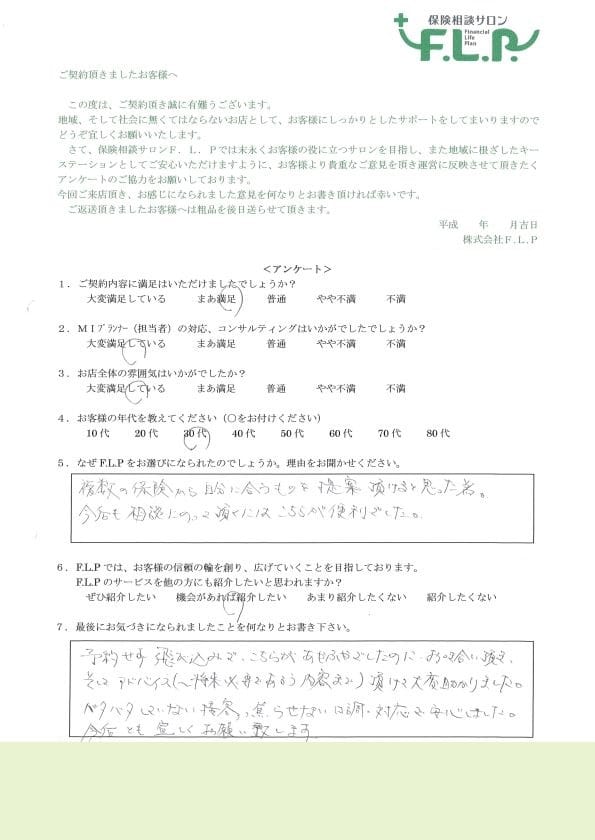 保険相談サロン
F.L.P.
Financial
Life
Plan
ご契約頂きましたお客様へ
この度は、ご契約頂き誠に有難うございます。
地域、そして社会に無くてはならないお店として、お客様にしっかりとしたサポートをしてまいりますので
どうぞ宜しくお願いいたします。
さて、保険相談サロンＦ．Ｌ．Ｐでは末永くお客様の役に立つサロンを目指し、また地域に根ざしたキー
ステーションとしてご安心いただけますように、お客様より貴重なご意見を頂き運営に反映させて頂きたく
アンケートのご協力をお願いしております。
今回ご来店頂き、お感じになられました意見を何なりとお書き頂ければ幸いです。
ご返送頂きましたお客様へは粗品を後日送らせて頂きます。
平成　　年　　月吉日
株式会社Ｆ.Ｌ.Ｐ
＜アンケート＞
１．ご契約内容に満足はいただけましたでしょうか？
大変満足している　まあ満足　普通　やや不満　不満
２．ＭＩﾌﾟﾗﾝﾅｰ（担当者）の対応、コンサルティングはいかがでしたでしょうか？
大変満足している　まあ満足　普通　やや不満　不満
３．お店全体の雰囲気はいかがでしたか？
大変満足している　まあ満足　普通　やや不満　不満
４．お客様の年代を教えてください（○をお付けください）
10代　20代　30代　40代　50代　60代　70代　80代
５．なぜF.L.Pをお選びになられたのでしょうか。理由をお聞かせください。
複数の保険から自分に合うものを提案頂けると思った為。
今后も相談にのって頂くにはこちらが便利でした。
６．F.L.Pでは、お客様の信頼の輪を創り、広げていくことを目指しております。
F.L.Pのサービスを他の方にも紹介したいと思われますか？
ぜひ紹介したい　機会があれば紹介したい　あまり紹介したくない　紹介したくない
７．最後にお気づきになられましたことを何なりとお書き下さい。
予約せず飛び込みで、こちらがあやふやでしたのに、お付き合い頂き、
そして アドバイス(将来必要であろう内容まで)頂けて大変助かりました。
バタバタしていない接客、焦らせない口調・対応で安心しました。
今后とも宜しくお願い致します。